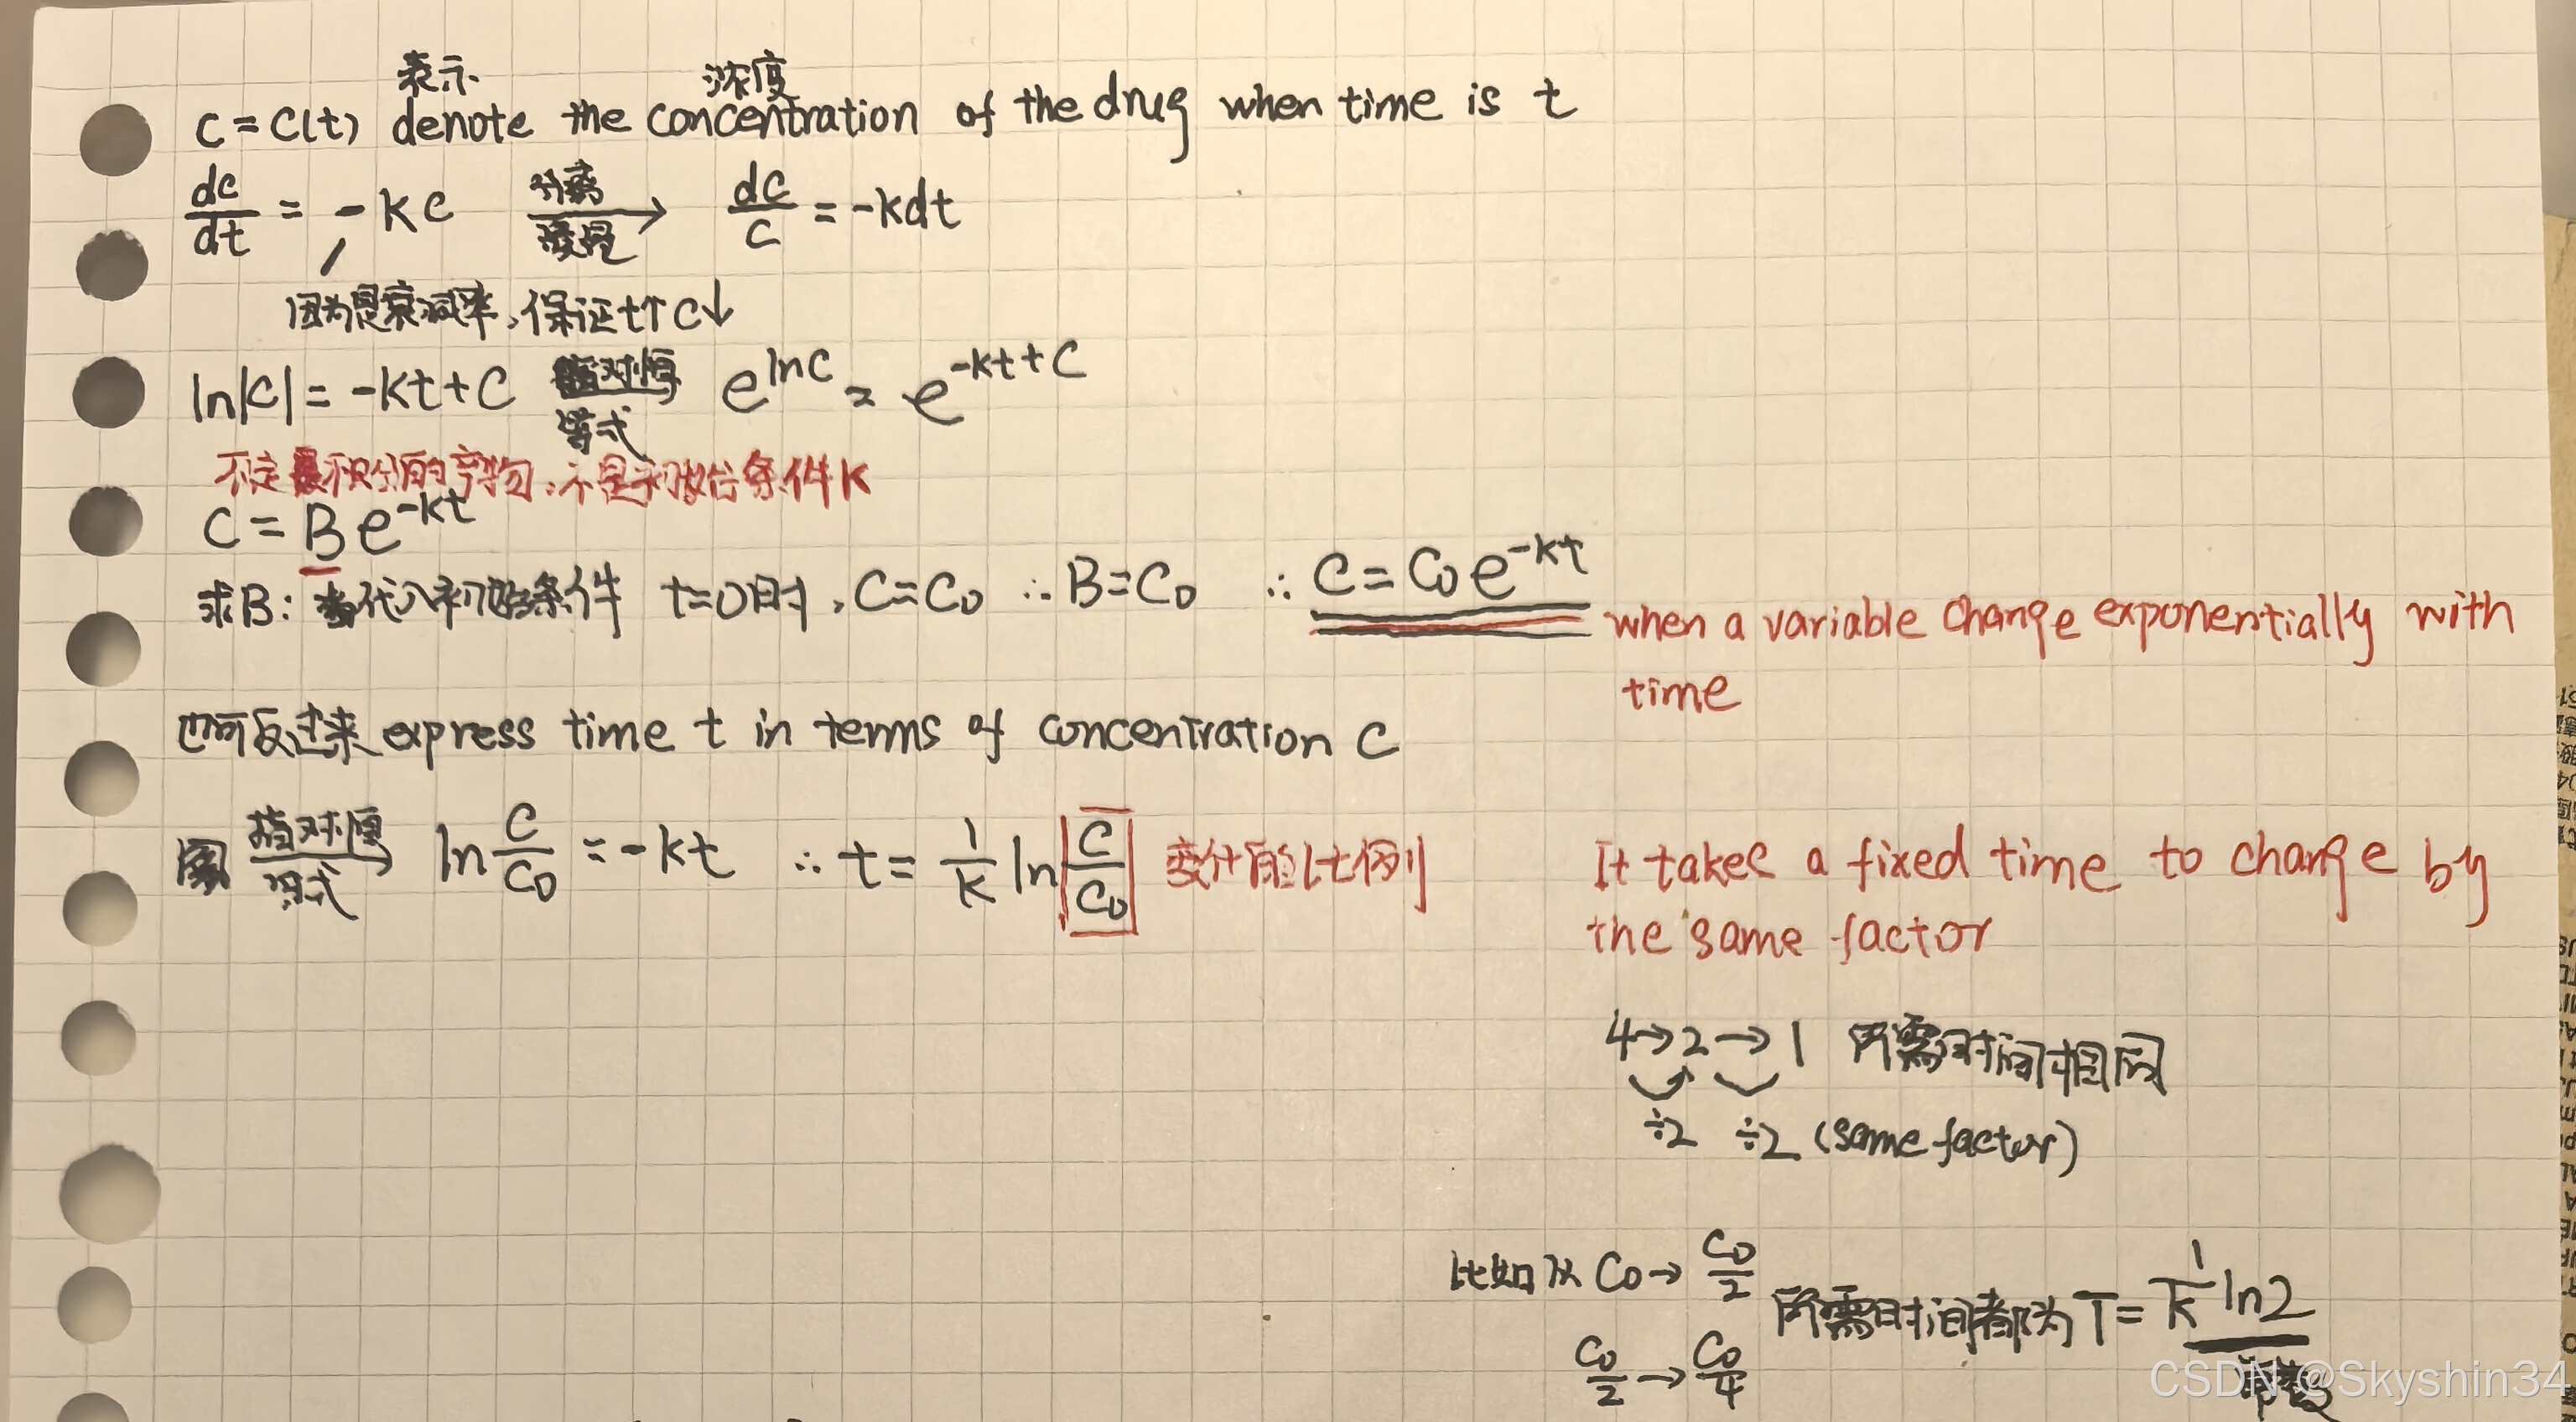 表示 浓度
C = C(t) denote the concentration of the drug when time is t
dc/dt = -kc 分离变量 → dc/c = -kdt
因为是衰减率,保证t↑c↓
ln|c| = -kt+C 指对恒等式 e^lnc = e^-kt+C
不定积分的产物,不是初始条件K
C = Be^-kt
求B: 代入初始条件 t=0时,C=C₀ ∴B=C₀ ∴ C=C₀e^-kt
when a variable change exponentially with
time
也可反过来 express time t in terms of concentration C
指对恒等式 → ln C/C₀ = -kt ∴ t = 1/k ln C/C₀ 变化的比例
It takes a fixed time to change by
the same factor
4→2→1 所需时间相同
÷2 ÷2 (same factor)
比如从 C₀→C₀/2
所需时间都为 T = 1/k ln2
C₀/2→C₀/4
CSDN @Skyshin34